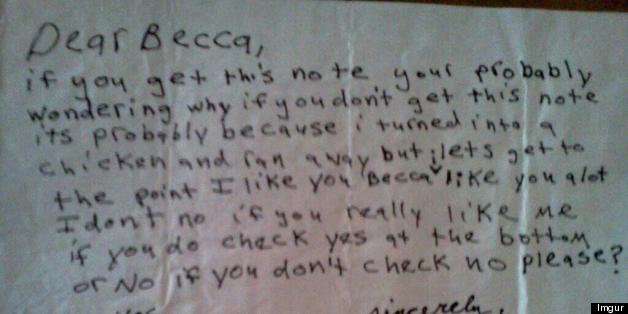 Dear Becca,
if you get this note your probably
wondering why if you don't get this note
its probably because i turned into a
chicken and ran away but lets get to
the point I like you Becca i like you alot
I don't no if you really like me
if you do check yes at the bottom
or No if you don't check no please?
sincerely,
Imgur